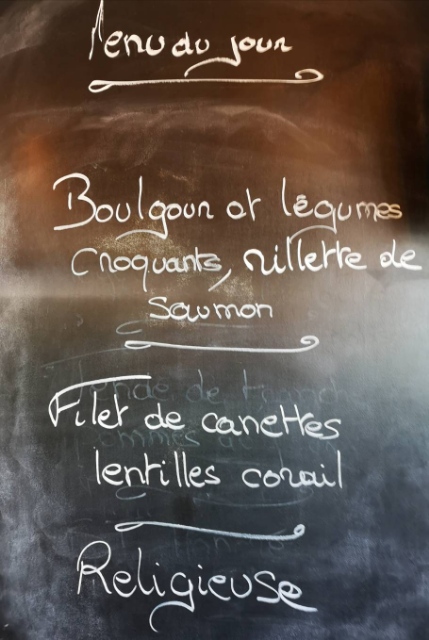 Menu du jour
Boulgour et légumes
croquants, rillette de
saumon
Filet de canettes
lentilles corail
Religieuse